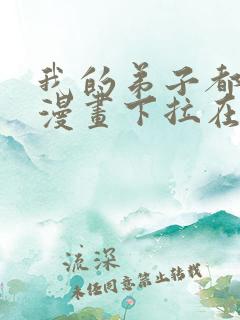 我的弟子都
漫畫下拉在
流深
未经同意禁止转载